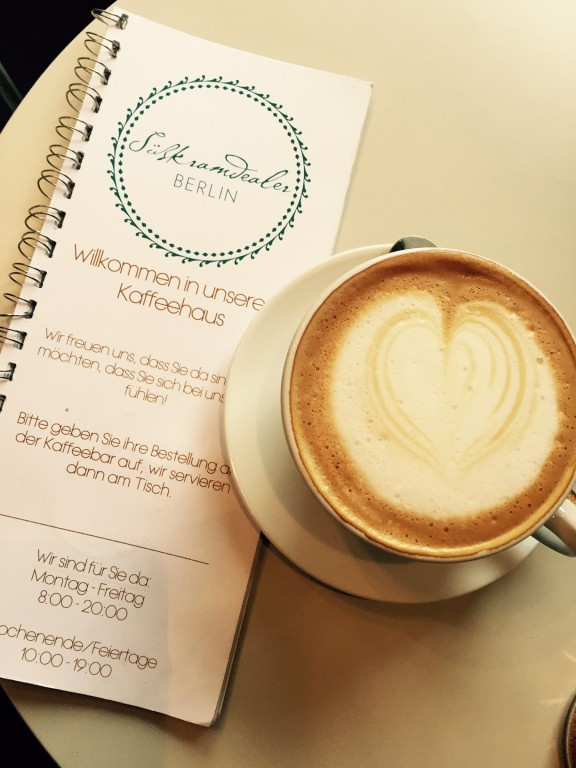 Süßkramdealer
BERLIN
Willkommen in unsere
Kaffeehaus
Wir freuen uns, dass Sie da sin
möchten, dass Sie sich bei uns
fühlen!
Bitte geben Sie ihre Bestellung a
der Kaffeebar auf, wir servieren
dann am Tisch.
Wir sind für Sie da:
Montag - Freitag
8:00 - 20:00
ochenende/Feiertage
10:00 - 19:00